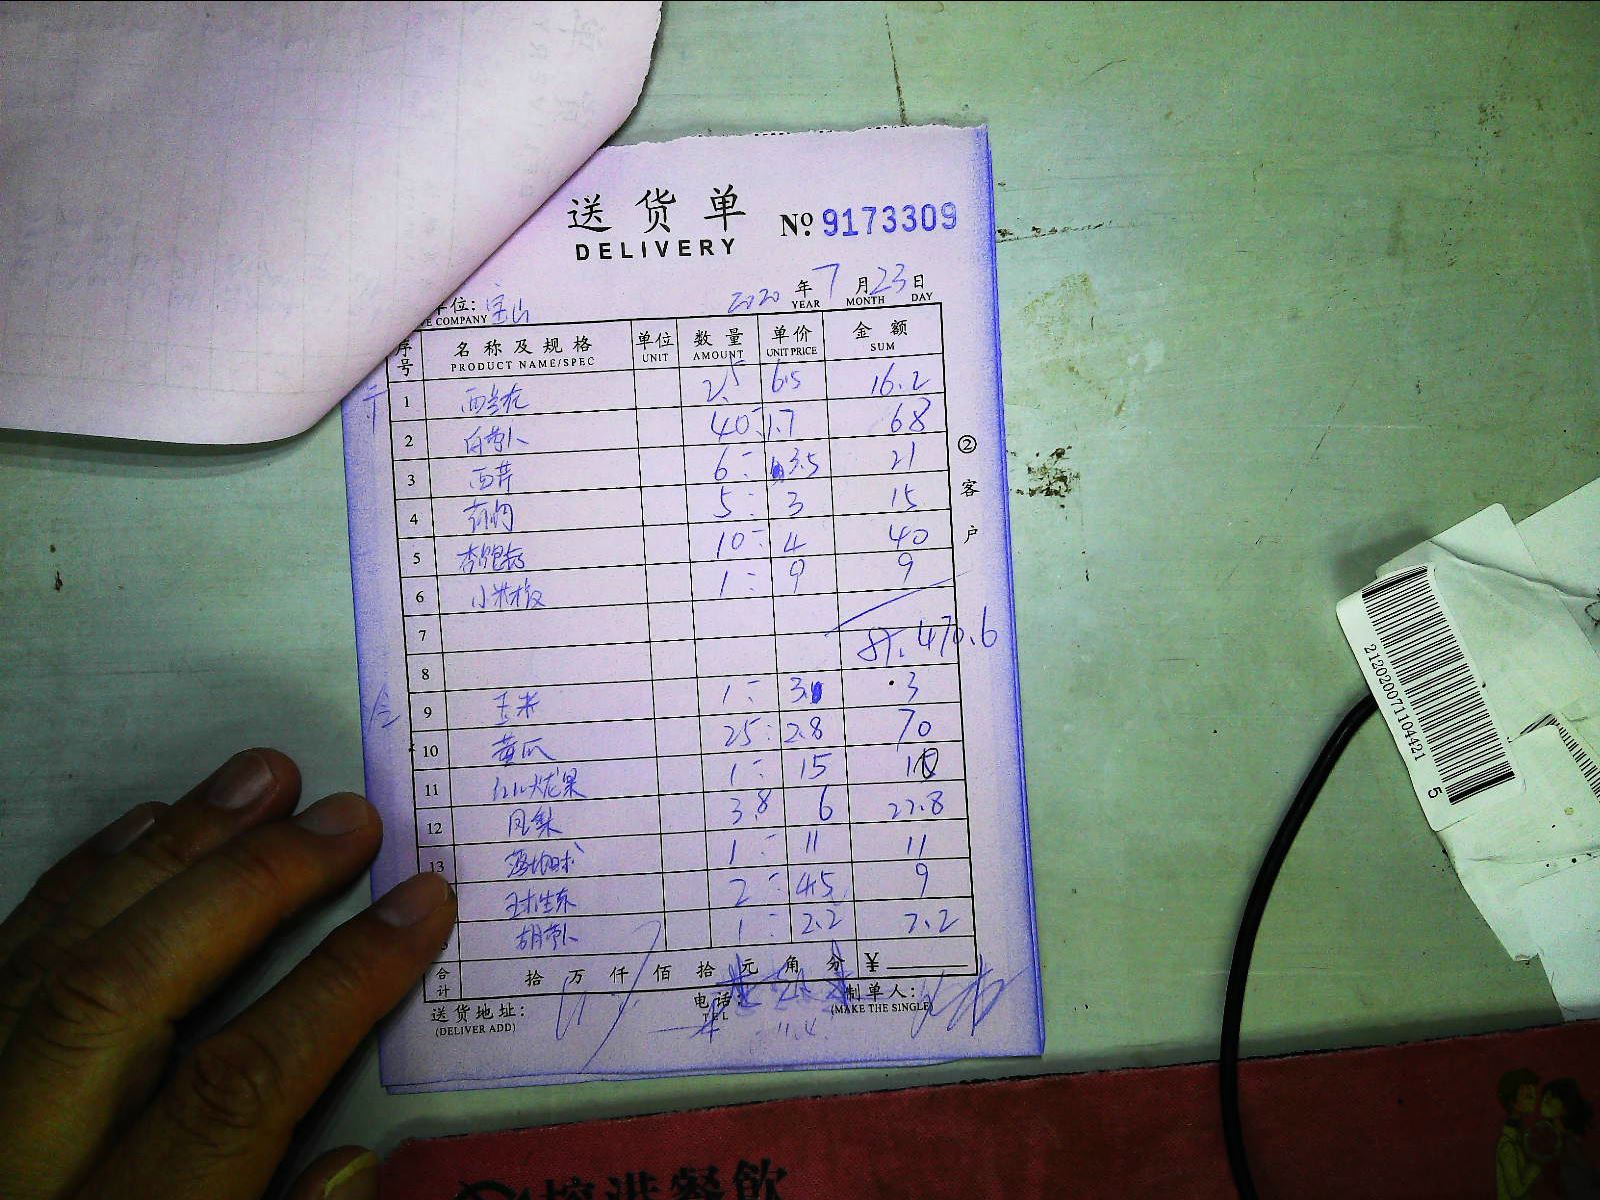 送货单
DELIVERY
No 9173309
单位: 宝山
2020 年 7 月 23 日
VE COMPANY YEAR MONTH DAY
序号 名称及规格 单位 数量 单价 金额
PRODUCT NAME/SPEC UNIT AMOUNT UNIT PRICE SUM
1 西兰花 2.5 6.5 16.2
2 白萝卜 40 1.7 68
3 西芹 6 3.5 21
4 5 3 15
5 杏鲍菇 10 4 40
6 小米椒 1 9 9
7
8 470.6
9 玉米 1 3 3
10 黄瓜 25 2.8 70
11 红火龙果 1 15 15
12 凤梨 3.8 6 22.8
13 1 11 11
球生菜 2 4.5 9
胡萝卜 1 2.2 2.2
合计 拾 万 仟 佰 拾 元 角 分 ¥
送货地址: 电话: 制单人:
(DELIVER ADD) TEL (MAKE THE SINGLE)
②客户
212020071104421
5
餐饮